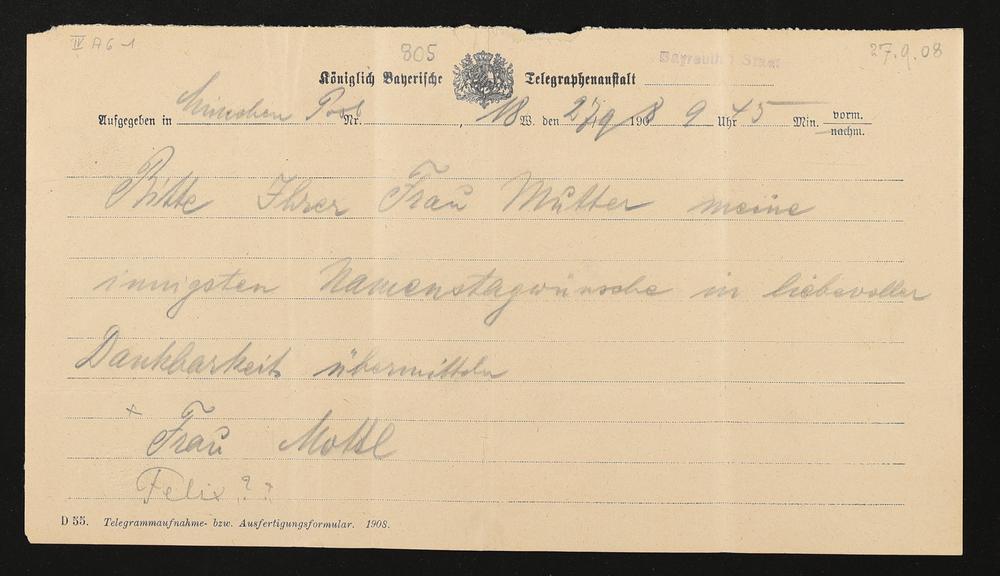 IV A 6-1
805
27.9.08
Königlich Bayerische Telegraphenanstalt Bayreuth Staat
Aufgegeben in München Post Nr. , 18 W. den 27/9 1908 9 Uhr 45 Min. vorm.
nachm.
Bitte Ihrer Frau Mutter meine
innigsten Namenstagwünsche in liebevoller
Dankbarkeit übermitteln
x
Frau Mottl
Felix ? ?
D 55. Telegrammaufnahme- bzw. Ausfertigungsformular. 1908.